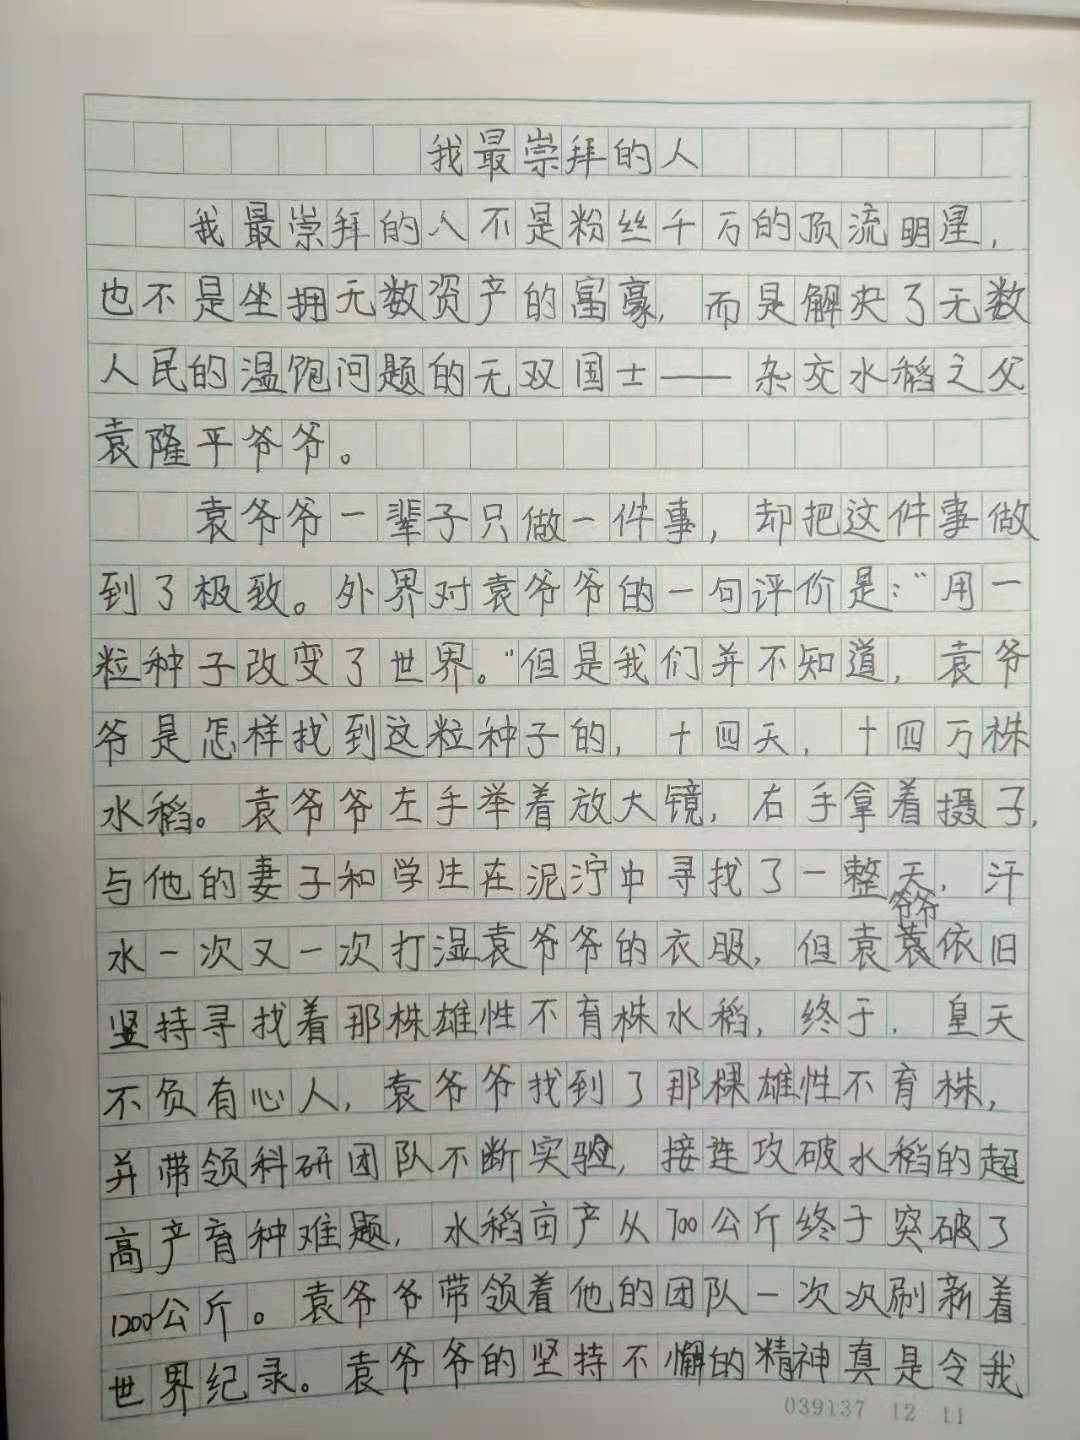 我最崇拜的人
我最崇拜的人不是粉丝千万的顶流明星，
也不是坐拥无数资产的富豪，而是解决了无数
人民的温饱问题的无双国士——杂交水稻之父
袁隆平爷爷。
袁爷爷一辈子只做一件事，却把这件事做
到了极致。外界对袁爷爷的一句评价是：“用一
粒种子改变了世界。”但是我们并不知道，袁爷
爷是怎样找到这粒种子的，十四天，十四万株
水稻。袁爷爷左手举着放大镜，右手拿着摄子，
与他的妻子和学生在泥泞中寻找了一整天，汗
水一次又一次打湿袁爷爷的衣服，但袁爷爷依旧
坚持寻找着那株雄性不育株水稻，终于，皇天
不负有心人，袁爷爷找到了那棵雄性不育株，
并带领科研团队不断实验，接连攻破水稻的超
高产育种难题，水稻亩产从700公斤终于突破了
1200公斤。袁爷爷带领着他的团队一次次刷新着
世界纪录。袁爷爷的坚持不懈的精神真是令我
039137 12 11